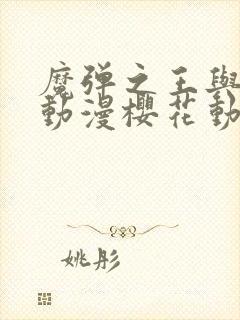 魔弹之王與
動漫櫻花動
姚彤